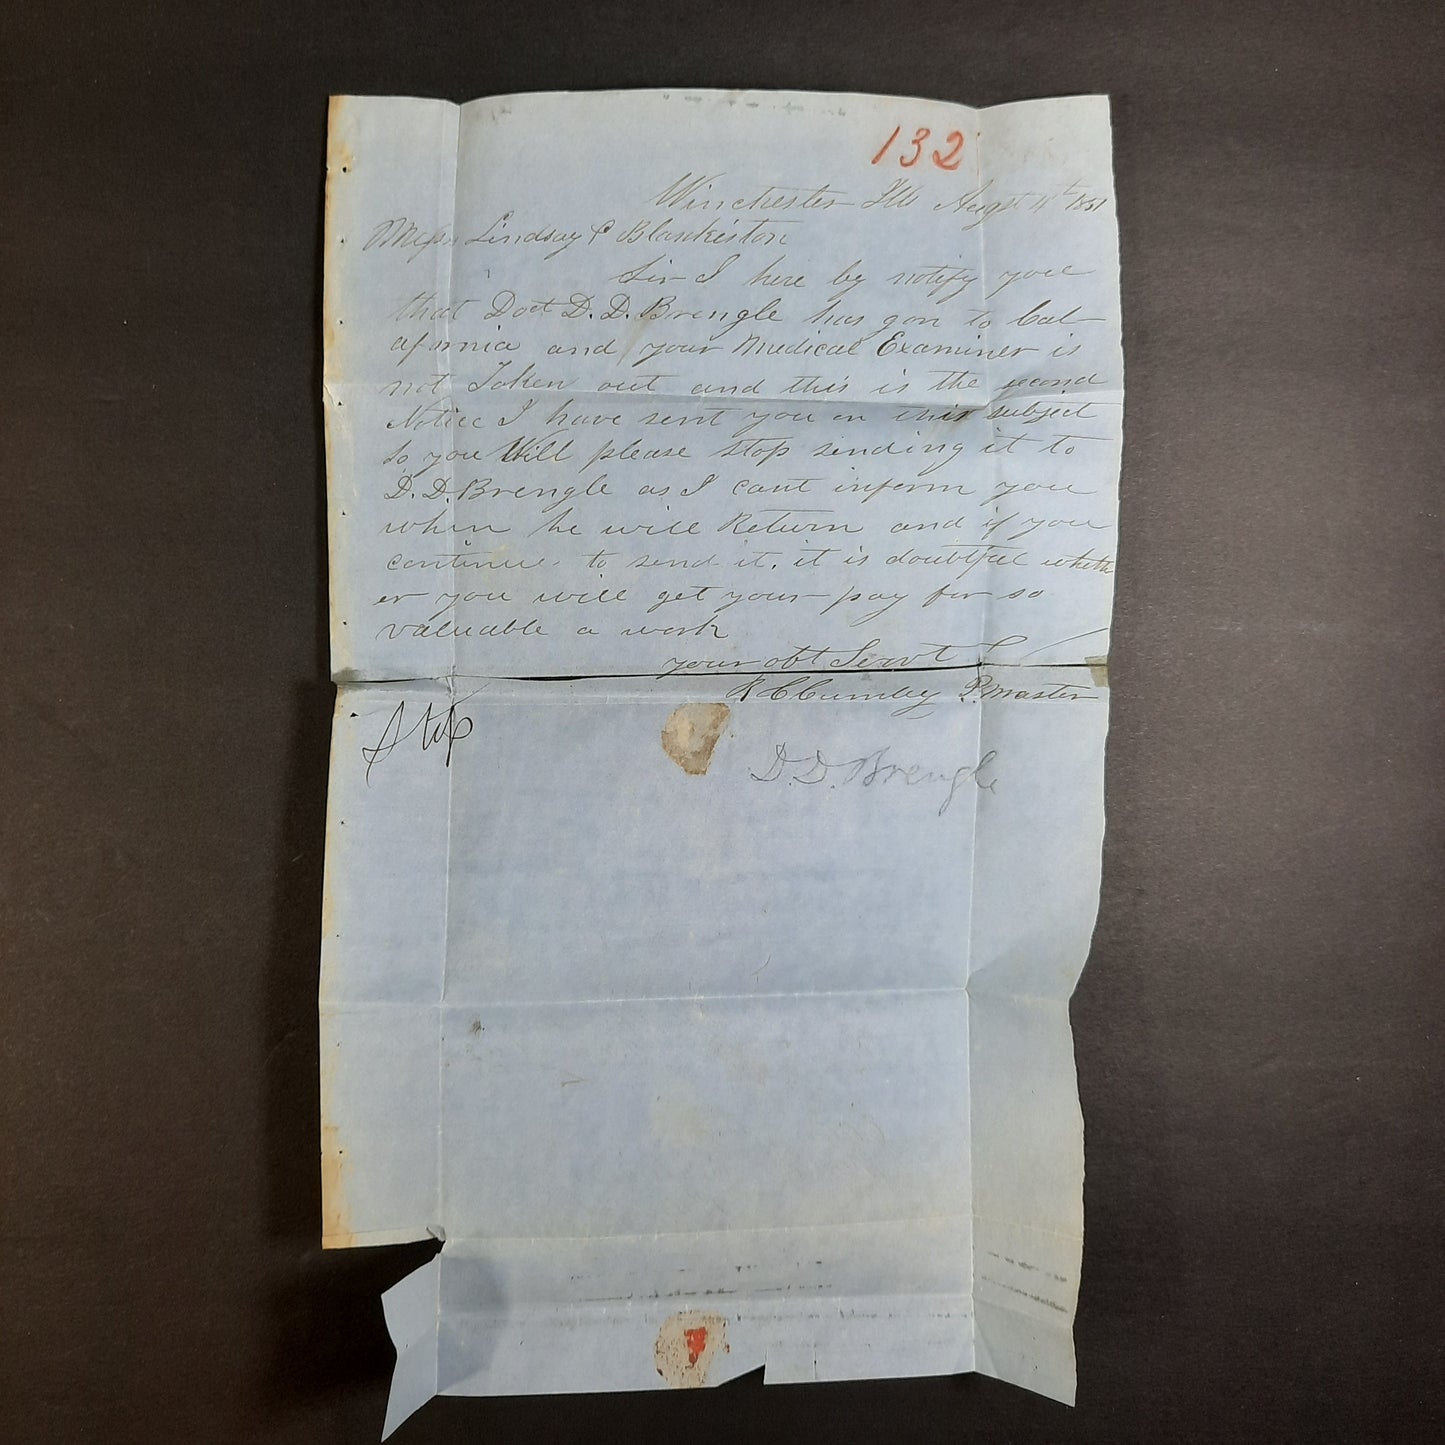 132
Winchester Ills Augst 4th 1851
Messrs Lindsay & Blackiston
Sir I here by notify you
that Doct D. D. Brengle has gon to Cal
afornia and your Medical Examiner is
not Taken out and this is the second
Notice I have sent you on this subject
so you Will please stop sending it to
D. D. Brengle as I cant inform you
when he will Return and if you
continue to send it, it is doubtful wheth
er you will get your pay for so
valuable a work
your obt Servt
P. Master
Stop
D. D. Brengle